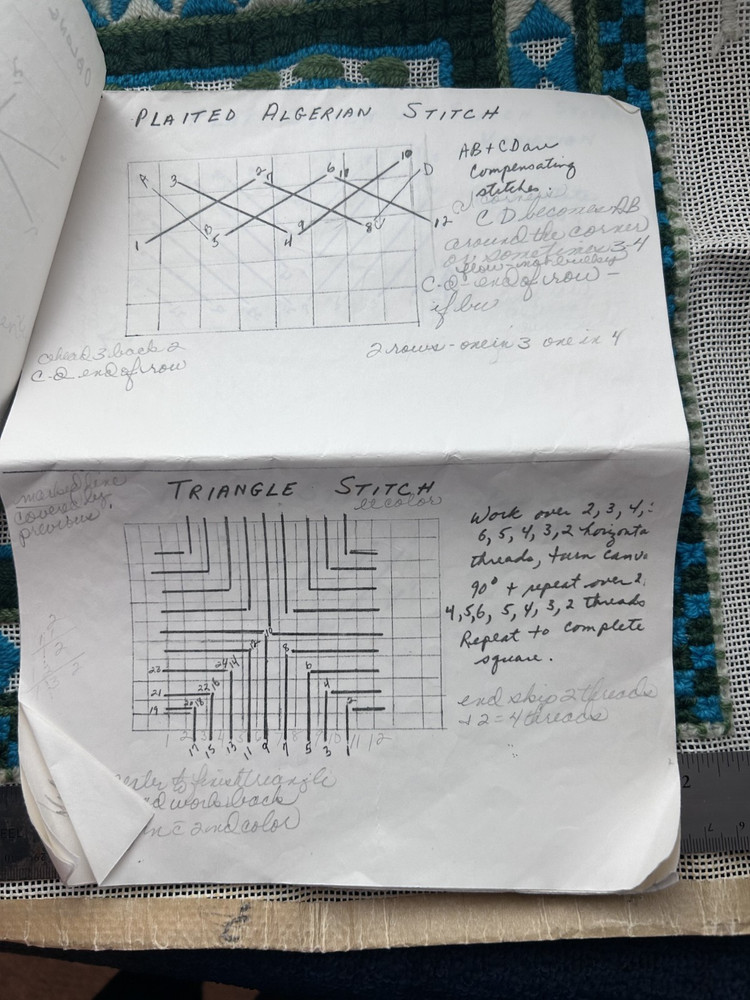 PLAITED ALGERIAN STITCH
A 3 2 7 6 11 10 D
1 B 5 4 9 8 C 12
AB + CD are
Compensating
stitches.
CD becomes AB
around the corner
or sometimes 3-4
C-D end of row -
if
check 3 back 2
C-D end of row
2 rows - one in 3 one in 4
marked line
covered by
previous.
TRIANGLE STITCH
color
Work over 2, 3, 4,
6, 5, 4, 3, 2 horizonta
threads, turn canv
90° + repeat over 2
4, 5, 6, 5, 4, 3, 2 threads
Repeat to complete
square.
end skip 2 threads
+ 2 = 4 threads
10
12 8
23 24 14 6
21 22 16 4
19 20 18 2
1 2 3 4 5 6 7 8 9 10 11 12
17 15 13 11 9 7 5 3 1
center to finish triangle
work back
in c̄ 2nd color
2